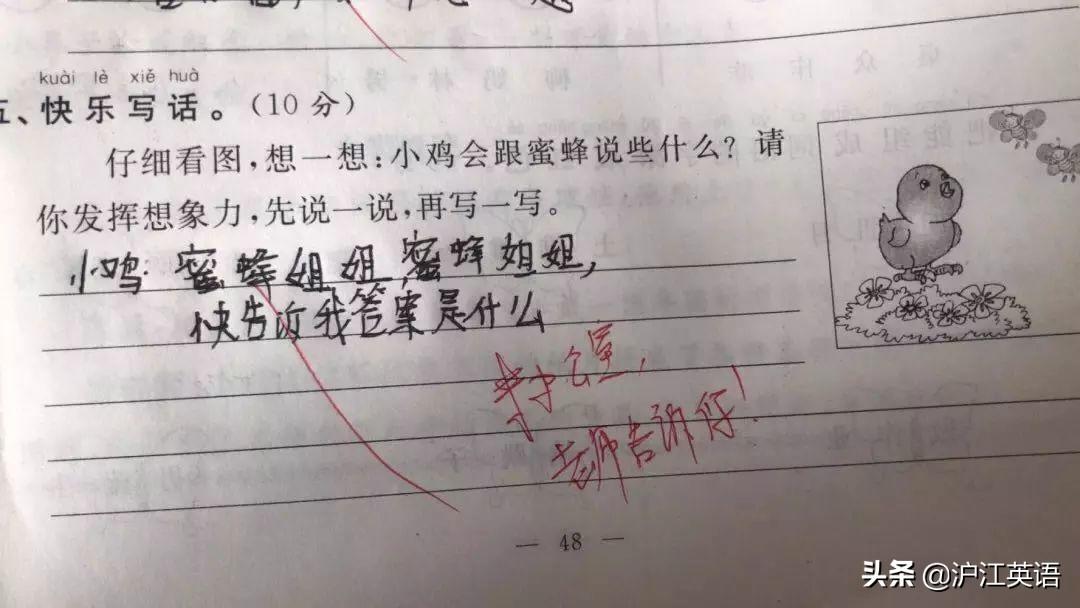 kuài lè xiě huà
五、快乐写话。（10 分）
仔细看图，想一想：小鸡会跟蜜蜂说些什么？请
你发挥想象力，先说一说，再写一写。
小鸡：蜜蜂姐姐，蜜蜂姐姐，
快告诉我答案是什么
来办公室，
老师告诉你！
— 48 —
头条 @沪江英语